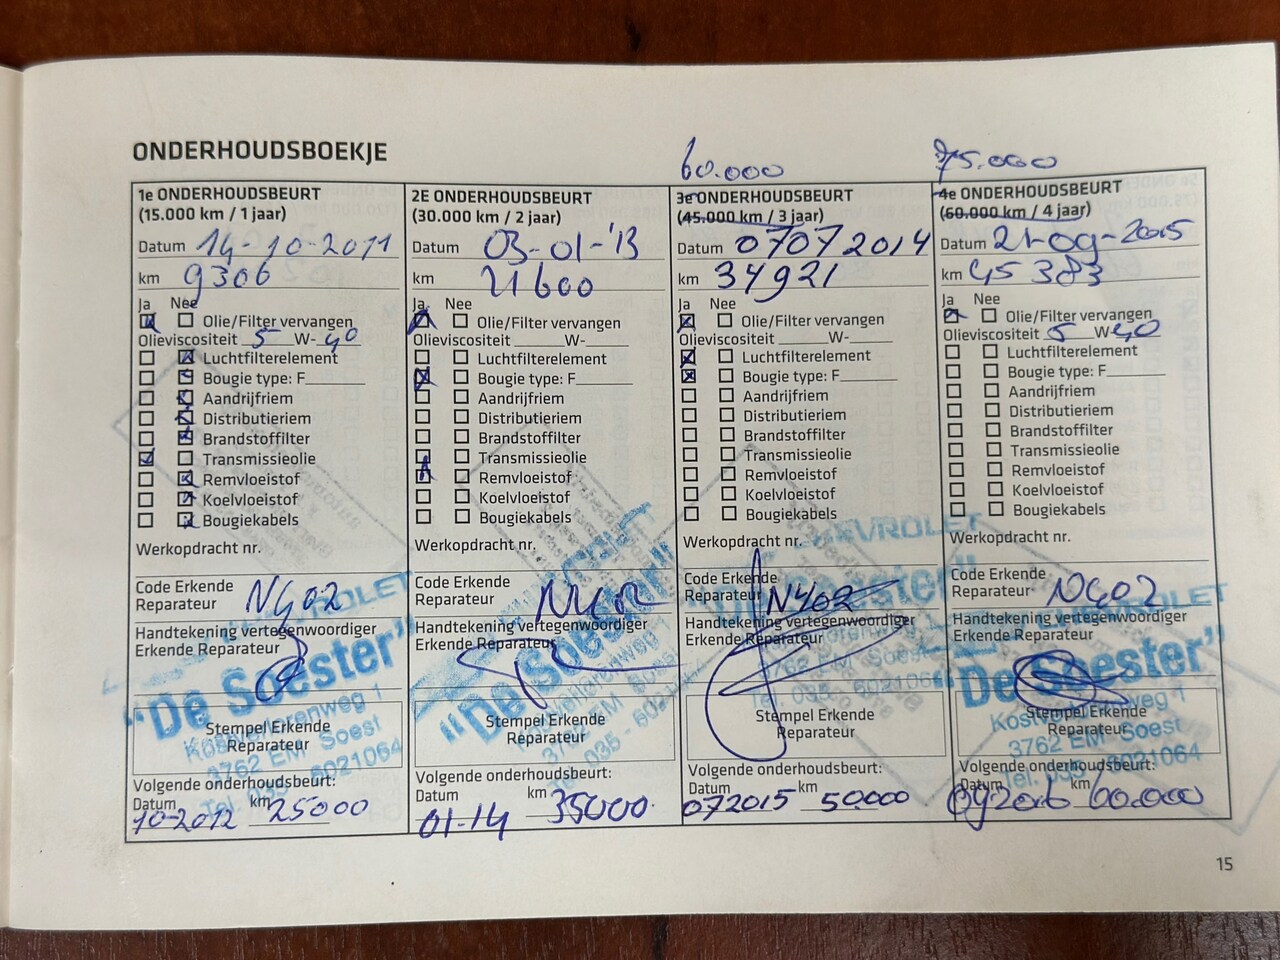 ONDERHOUDSBOEKJE
60.000
75.000
1e ONDERHOUDSBEURT
(15.000 km / 1 jaar)
Datum 14-10-2011
km 9306
Ja Nee
Olie/Filter vervangen
Olieviscositeit 5 W-40
Luchtfilterelement
Bougie type: F
Aandrijfriem
Distributieriem
Brandstoffilter
Transmissieolie
Remvloeistof
Koelvloeistof
Bougiekabels
Werkopdracht nr.
Code Erkende
Reparateur N402
Handtekening vertegenwoordiger
Erkende Reparateur
"De Soester"
Stempel Erkende
Reparateur
3762 EM Soest
6021064
Volgende onderhoudsbeurt:
Datum km
10-2012 25000
2E ONDERHOUDSBEURT
(30.000 km / 2 jaar)
Datum 03-01-'13
km 21600
Ja Nee
Olie/Filter vervangen
Olieviscositeit W-
Luchtfilterelement
Bougie type: F
Aandrijfriem
Distributieriem
Brandstoffilter
Transmissieolie
Remvloeistof
Koelvloeistof
Bougiekabels
Werkopdracht nr.
Code Erkende
Reparateur
Handtekening vertegenwoordiger
Erkende Reparateur
"De Soester"
Stempel Erkende
Reparateur
3762 EM
035 -
Volgende onderhoudsbeurt:
Datum km
01-14 35000
3e ONDERHOUDSBEURT
(45.000 km / 3 jaar)
Datum 07 07 2014
km 34921
Ja Nee
Olie/Filter vervangen
Olieviscositeit W-
Luchtfilterelement
Bougie type: F
Aandrijfriem
Distributieriem
Brandstoffilter
Transmissieolie
Remvloeistof
Koelvloeistof
Bougiekabels
Werkopdracht nr.
CHEVROLET
Code Erkende
Reparateur N402
"De Soester"
Handtekening vertegenwoordiger
Erkende Reparateur
3762 EM Soest
Tel. 035 - 6021064
Stempel Erkende
Reparateur
Volgende onderhoudsbeurt:
Datum km
07 2015 50000
4e ONDERHOUDSBEURT
(60.000 km / 4 jaar)
Datum 21-09-2015
km 45383
Ja Nee
Olie/Filter vervangen
Olieviscositeit 5 W-40
Luchtfilterelement
Bougie type: F
Aandrijfriem
Distributieriem
Brandstoffilter
Transmissieolie
Remvloeistof
Koelvloeistof
Bougiekabels
Werkopdracht nr.
Code Erkende
Reparateur N402
CHEVROLET
Handtekening vertegenwoordiger
Erkende Reparateur
"De Soester"
Stempel Erkende
Reparateur
3762 EM Soest
Tel. 035 - 6021064
Volgende onderhoudsbeurt:
Datum km
09 2016 60.000
15